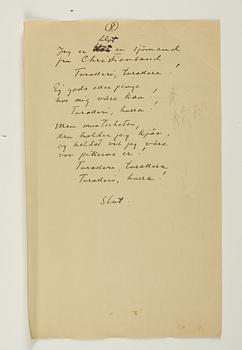 8
blot
Jeg er en sjömand
fra Christiansand
Turaderö, turadera!
Ej gods eller penge,
hos mig våre kan,
Turaderö, hurra!
Men munterheten,
den holder jeg kjär,
og heldst vil jeg våre
vor pikerne er!
Turaderö, turadera
Turaderö, hurra!
Slut.